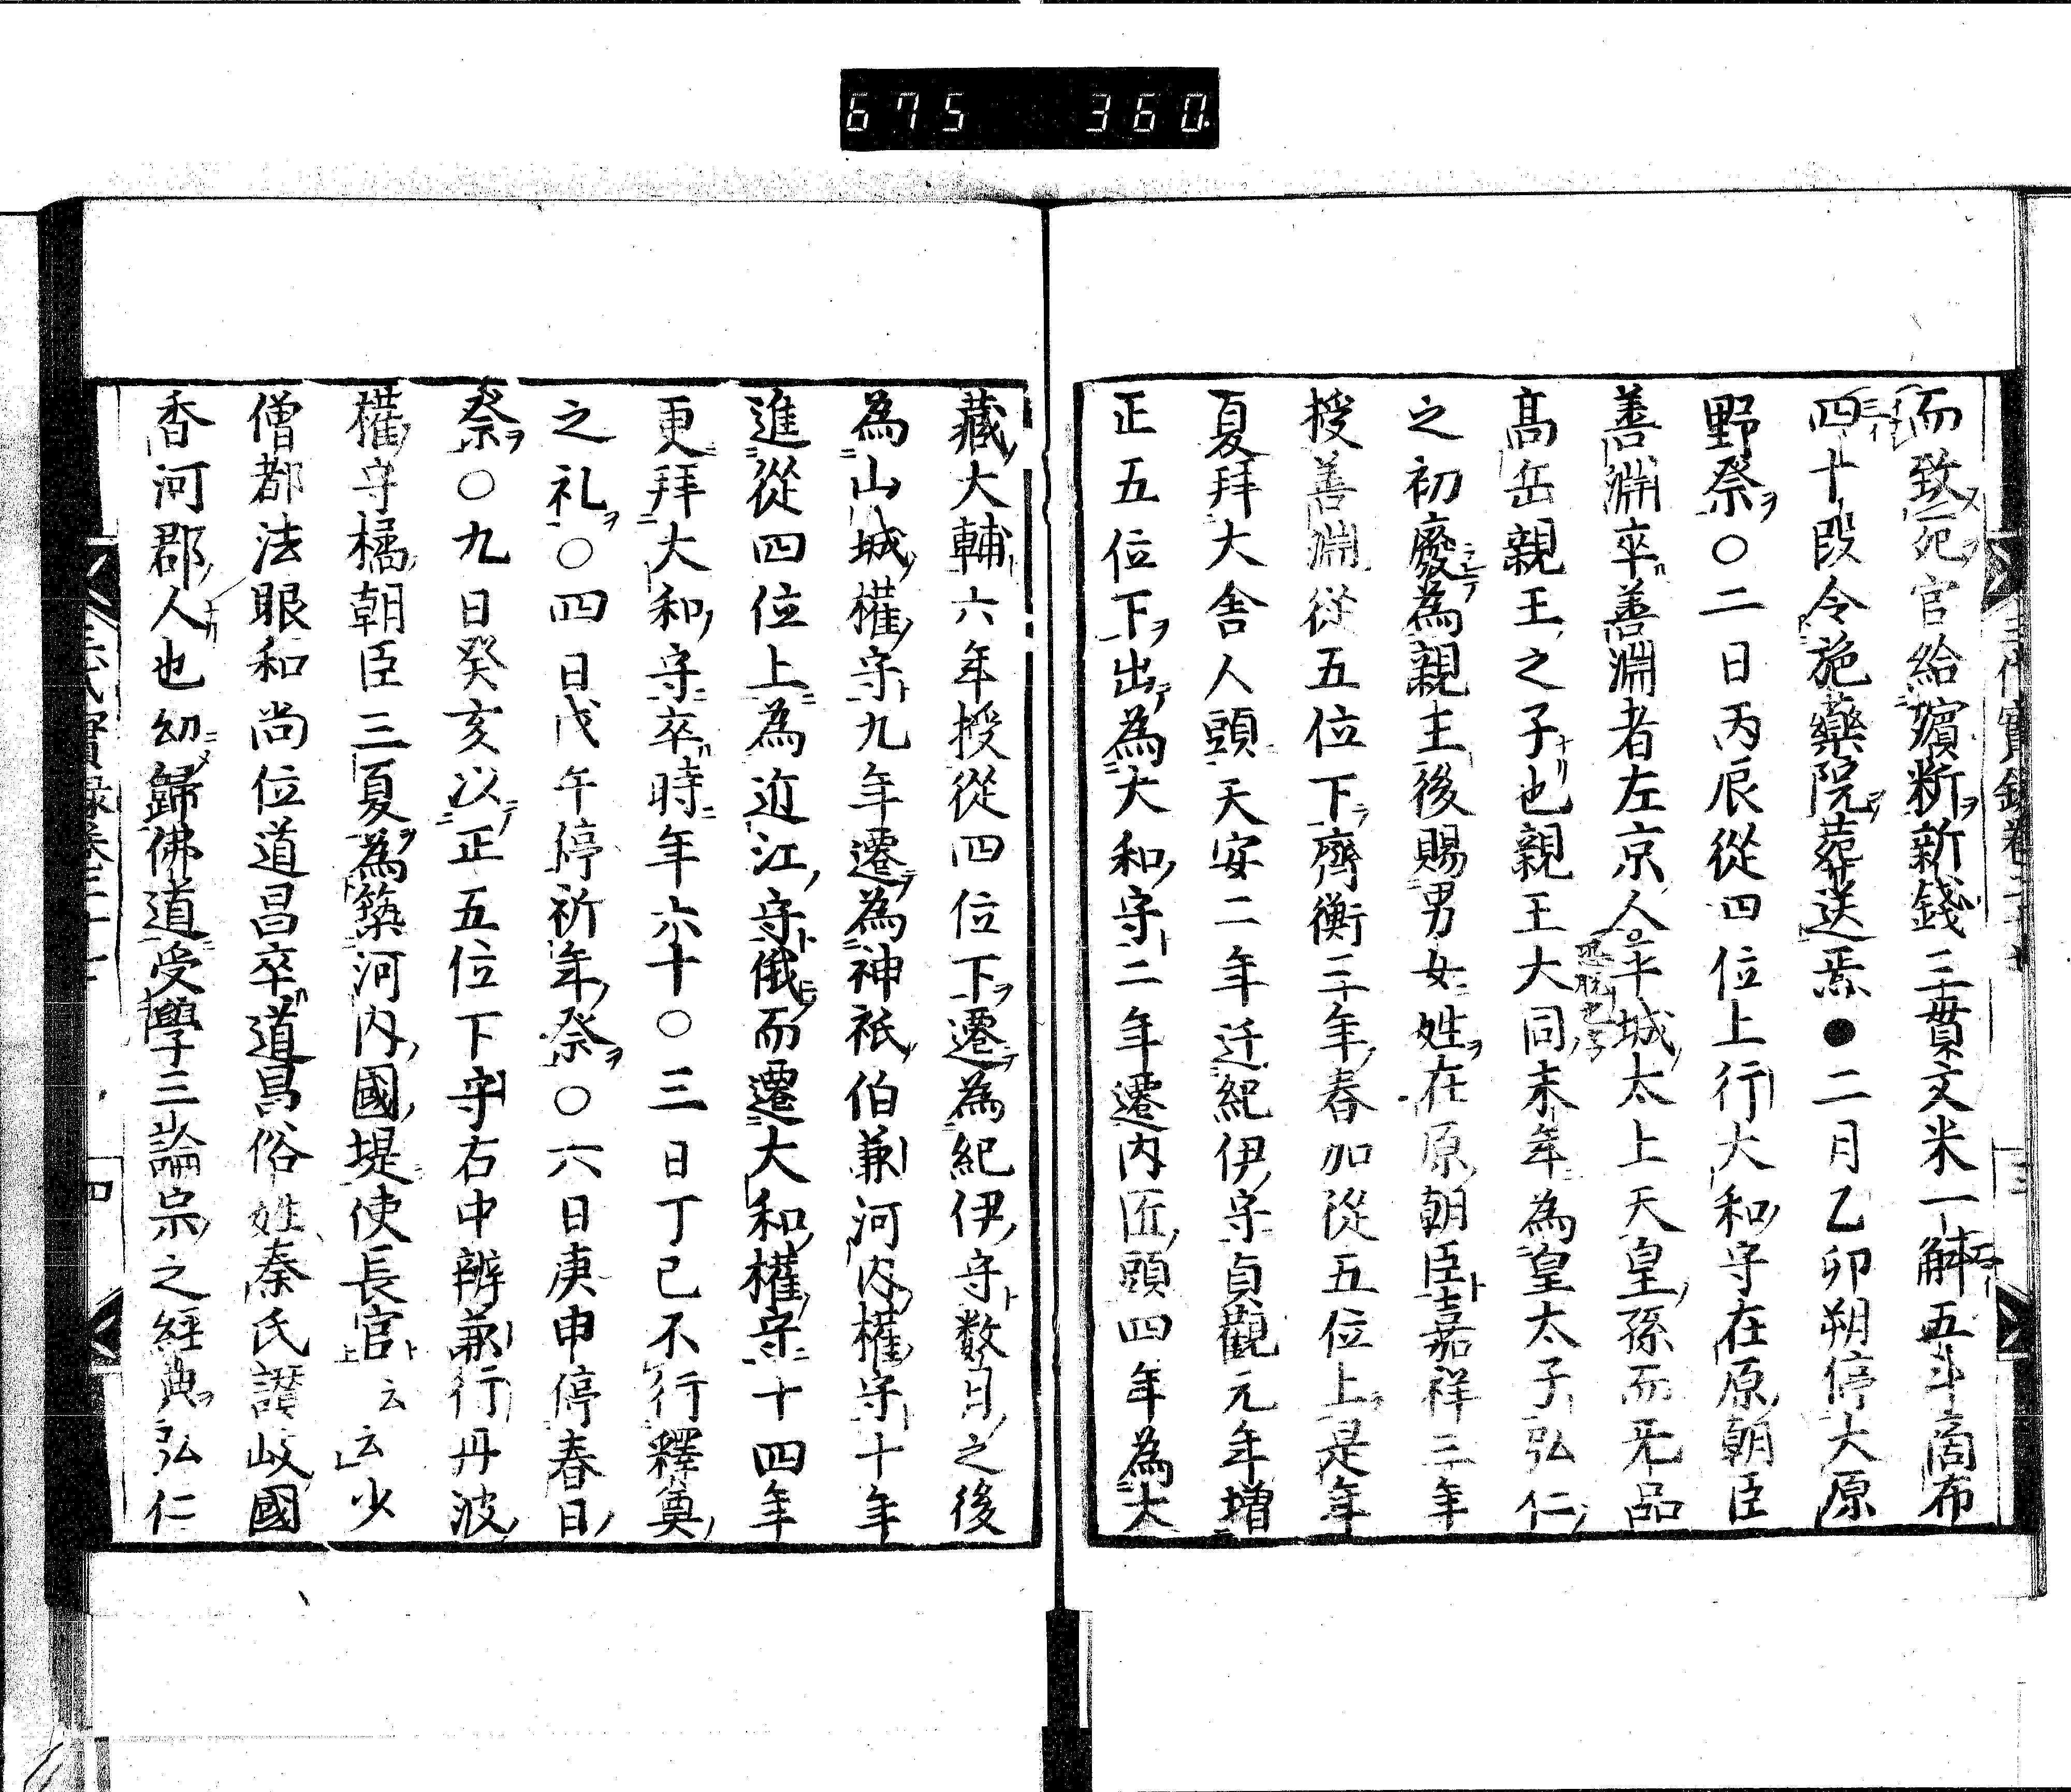 675 360
而致死官給殯斂新錢三貫文米一斛五斗商布
四十段令施藥院葬送焉●二月乙卯朔停大原
野祭○二日丙辰從四位上行大和守在原朝臣
善淵卒善淵者左京人平城太上天皇孫而无品
高岳親王之子也親王大同末年為皇太子弘仁
之初廢為親王後賜男女姓在原朝臣嘉祥三年
授善淵從五位下齊衡三年春加從五位上是年
夏拜大舎人頭天安二年迁紀伊守貞觀元年増
正五位下出為大和守二年遷内匠頭四年為大
藏大輔六年授從四位下遷為紀伊守数日之後
為山城權守九年遷為神祇伯兼河内權守十年
進從四位上為近江守俄而遷大和權守十四年
更拜大和守卒時年六十○三日丁已不行釋奠
之礼○四日戊午停祈年祭○六日庚申停春日
祭○九日癸亥以正五位下守右中辨兼行丹波
權守橘朝臣三夏為築河内國堤使長官云云少
僧都法眼和尚位道昌卒道昌俗姓秦氏讃岐國
香河郡人也幼歸佛道受學三論宗之經典弘仁